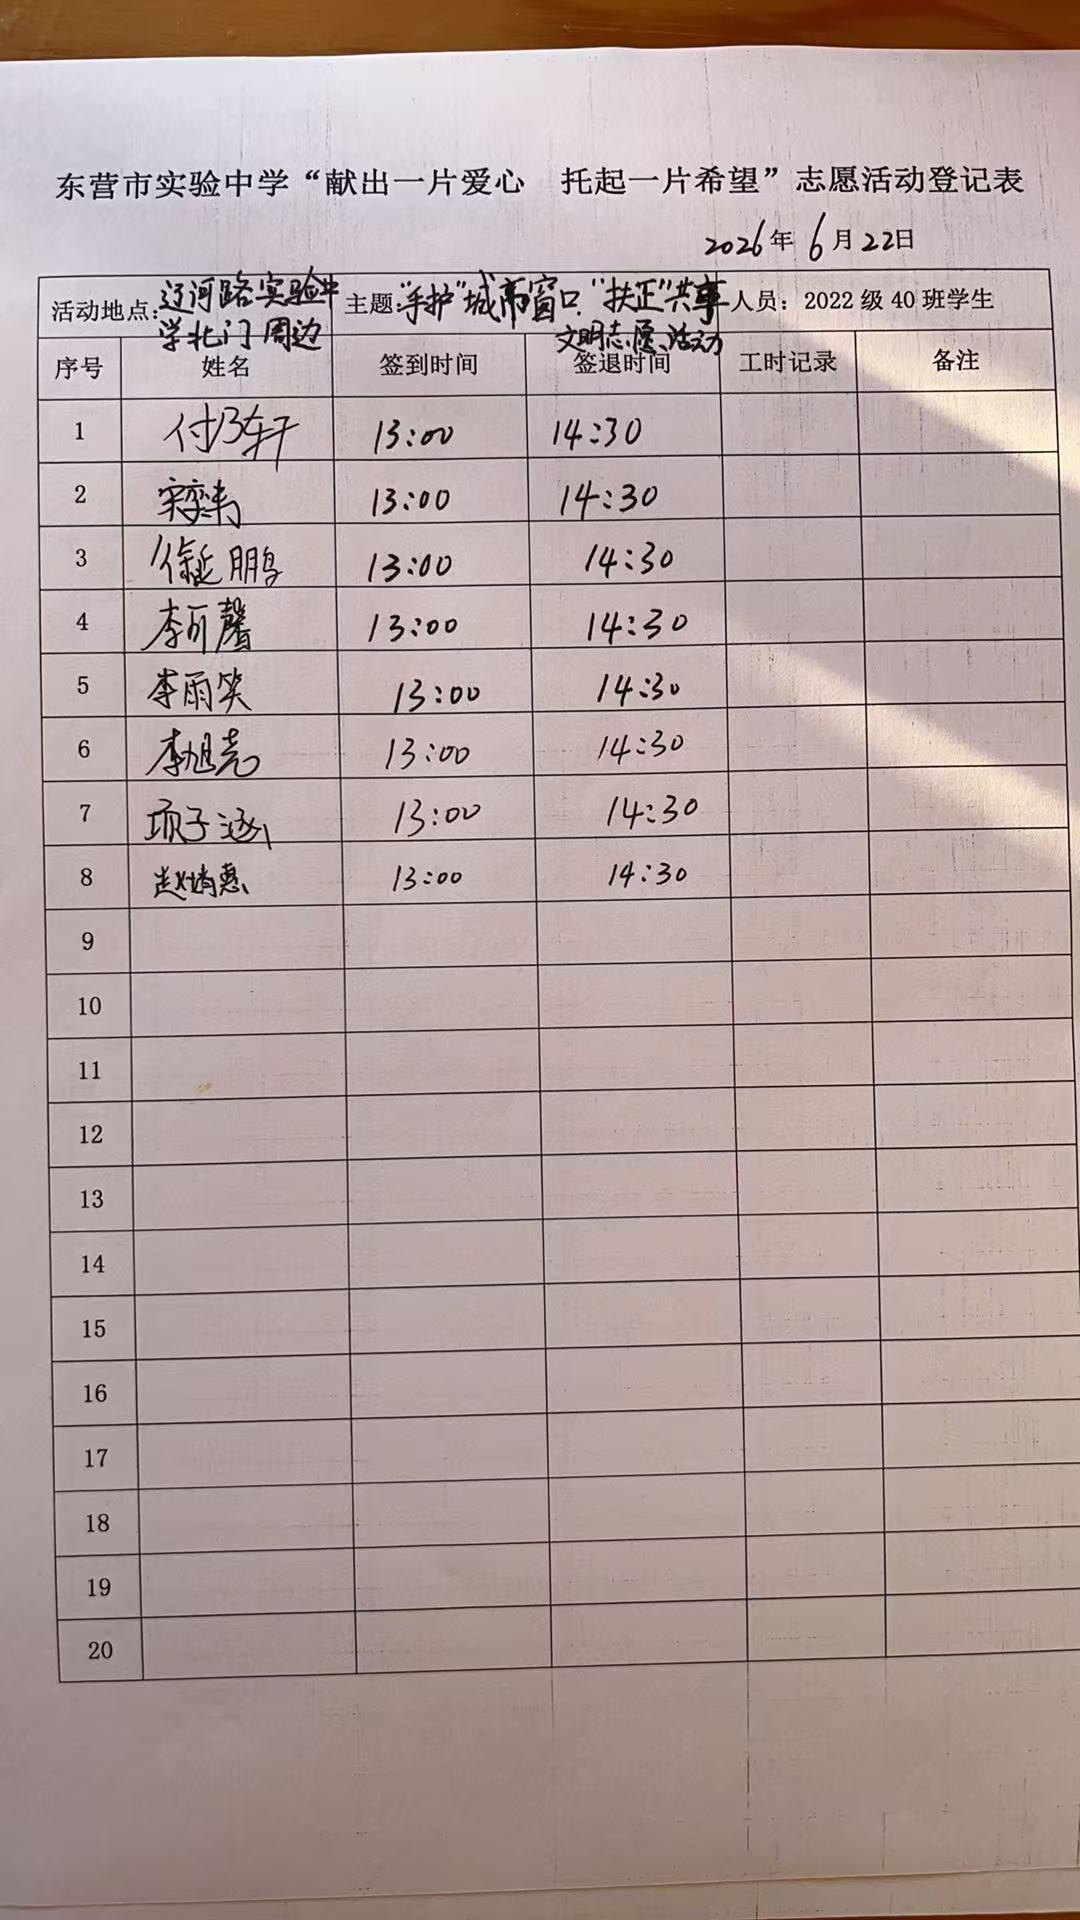 东营市实验中学“献出一片爱心 托起一片希望”志愿活动登记表
2026年 6月22日
活动地点：辽河路实验中学北门周边 主题“手护”城市窗口、“扶正”共享文明志愿活动 人员：2022级40班学生
序号 姓名 签到时间 签退时间 工时记录 备注
1 付乃轩 13:00 14:30
2 13:00 14:30
3 徐延鹏 13:00 14:30
4 李可馨 13:00 14:30
5 李雨笑 13:00 14:30
6 李旭尧 13:00 14:30
7 项子涵 13:00 14:30
8 赵婧惠 13:00 14:30
9
10
11
12
13
14
15
16
17
18
19
20